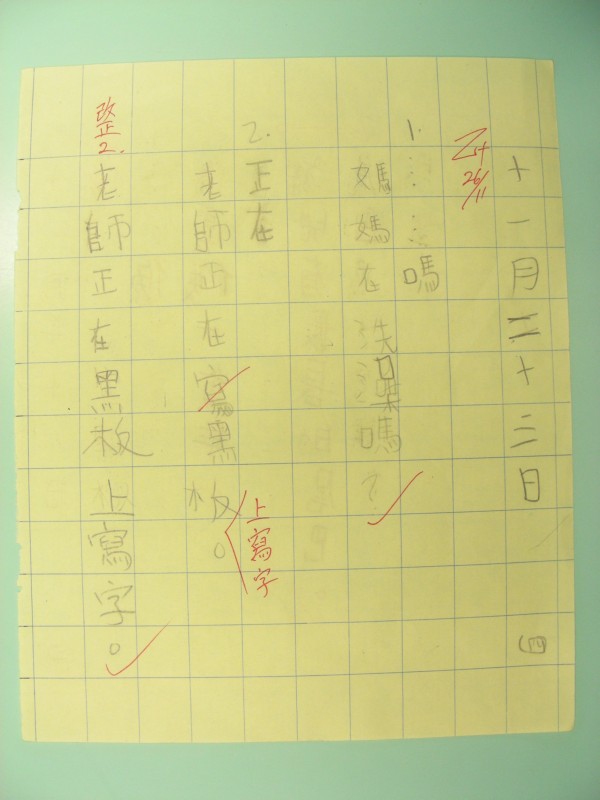 十一月二十二日(四
26/11
1.……嗎
媽媽在洗澡嗎?
2.正在
老師正在寫黑板。
上寫字
改正
2.老師正在黑板上寫字。